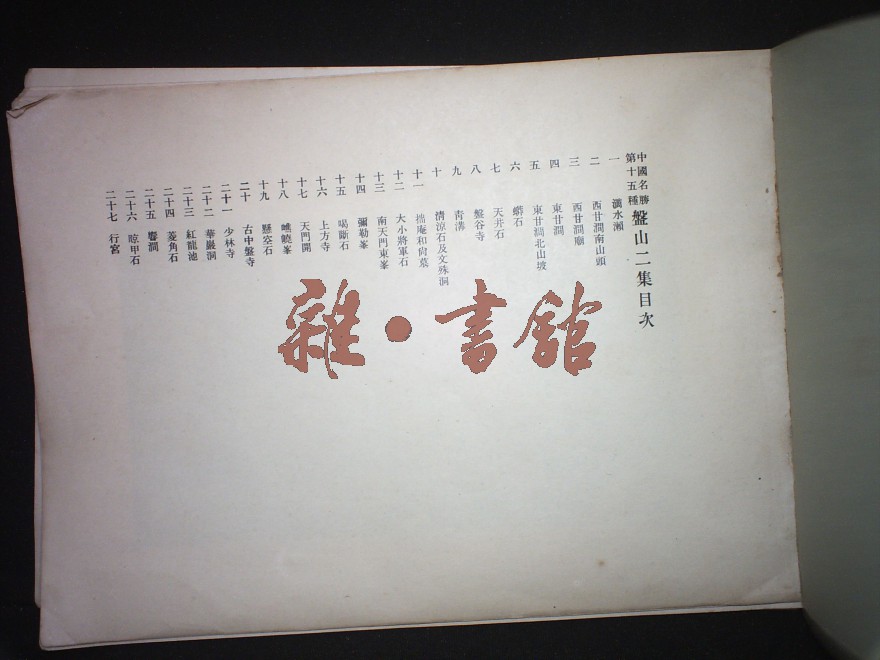 中國名勝第十五種 盤山二集目次
一 滴水瀨
二 西甘澗南山頭
三 西甘澗廟
四 東甘澗
五 東甘澗北山坡
六 蟒石
七 天井石
八 盤谷寺
九 青溝
十 清涼石及文殊洞
十一 拙庵和尚墓
十二 大小將軍石
十三 南天門東峯
十四 彌勒峯
十五 喝斷石
十六 上方寺
十七 天門開
十八 嶕嶢峯
十九 懸空石
二十 古中盤寺
二十一 少林寺
二十二 華嚴洞
二十三 紅龍池
二十四 菱角石
二十五 響澗
二十六 晾甲石
二十七 行宮
雜·書館